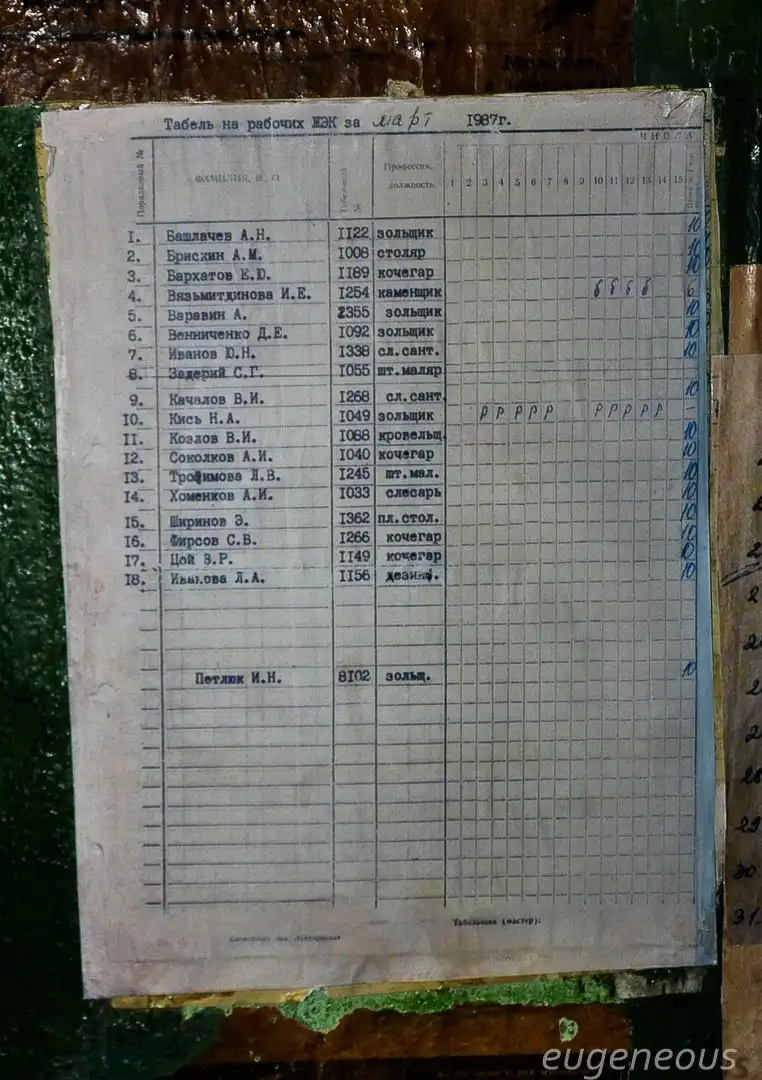 Табель на рабочих ЖЭК за март 1987г.
ЧИСЛА
Порядковый № ФАМИЛИЯ, И., О. Табельный № Профессия, должность 1 2 3 4 5 6 7 8 9 10 11 12 13 14 15
1. Башлачев А.Н. 1122 зольщик 10
2. Брискин А.М. 1008 столяр
3. Бархатов Е.Ю. 1189 кочегар 10
4. Вязьмитдинова И.Е. 1254 каменщик б б б б 6
5. Варавин А. 2355 зольщик 10
6. Венниченко Д.Е. 1092 зольщик 10
7. Иванов Ю.Н. 1338 сл.сант. 10
8. Задерий С.Г. 1055 шт.маляр
9. Качалов В.И. 1268 сл.сант. 10
10. Кись Н.А. 1049 зольщик р р р р р р р р р р –
11. Козлов В.И. 1088 кровельщ. 10
12. Соколков А.И. 1040 кочегар 10
13. Трофимова Л.В. 1245 шт.мал. 10
14. Хоменков А.И. 1033 слесарь 10
15. Ширинов Э. 1362 пл.стол. 10
16. Фирсов С.В. 1266 кочегар 10
17. Цой В.Р. 1149 кочегар 10
18. Иванова Л.А. 1156 дезинф. 10
Петлюк И.Н. 8102 зольщ. 10
Табельщик (мастер):
29
30.
31.
eugeneous